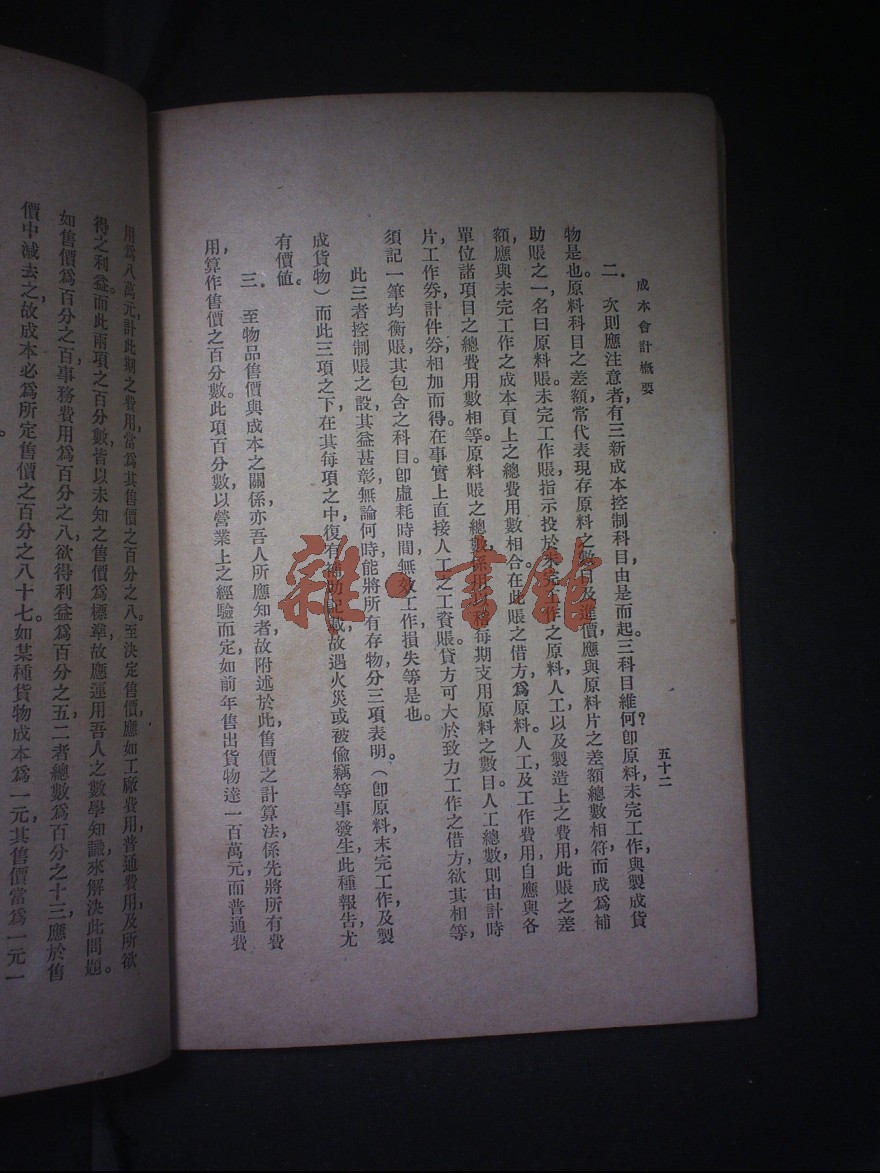 成本會計概要
五十二
二. 次則應注意者,有三新成本控制科目由是而起。三科目維何?卽原料,未完工作,與製成貨
物是也。原料科目之差額,常代表現存原料之數目及進價,應與原料片之差額總數相符,而成爲補
助賬之一,名曰原料賬。未完工作賬,指示投於未完工作之原料,人工,以及製造上之費用,此賬之差
額,應與未完工作之成本頁上之總費用數相合。在此賬之借方,爲原料,人工,及工作費用,自應與各
單位諸項目之總費用數相等。原料賬之總數,係用以稽每期支用原料之數目,人工總數,則由計時
片,工作券,計件券相加而得。在事實上,直接人工之工資賬,貸方可大於致力工作之借方,欲其相等,
須記一筆均衡賬,其包含之科目,卽虛耗時間,無效工作,損失等是也。
此三者控制賬之設,其益甚彰,無論何時,能將所有存物分三項表明。(卽原料,未完工作,及製
成貨物)而此三項之下,在其每項之中,復有補助記載,故遇火災或被偷竊等事發生,此種報吿,尤
有價値。
三. 至物品售價與成本之關係,亦吾人所應知者,故附述於此,售價之計算法,係先將所有費
用,算作售價之百分數。此項百分數,以營業上之經驗而定,如前年售出貨物達一百萬元,而普通費
用爲八萬元,計此期之費用,當爲其售價之百分之八。至決定售價,應如工廠費用,普通費用,及所欲
得之利益,而此兩項之百分數,皆以未知之售價爲標準,故應運用吾人之數學知識,來解決此問題。
如售價爲百分之百,事務費用爲百分之八,欲得利益爲百分之五,二者總數爲百分之十三,應於售
價中減去之,故成本必爲所定售價之百分之八十七。如某種貨物成本爲一元,其售價當爲一元一
雜·書館